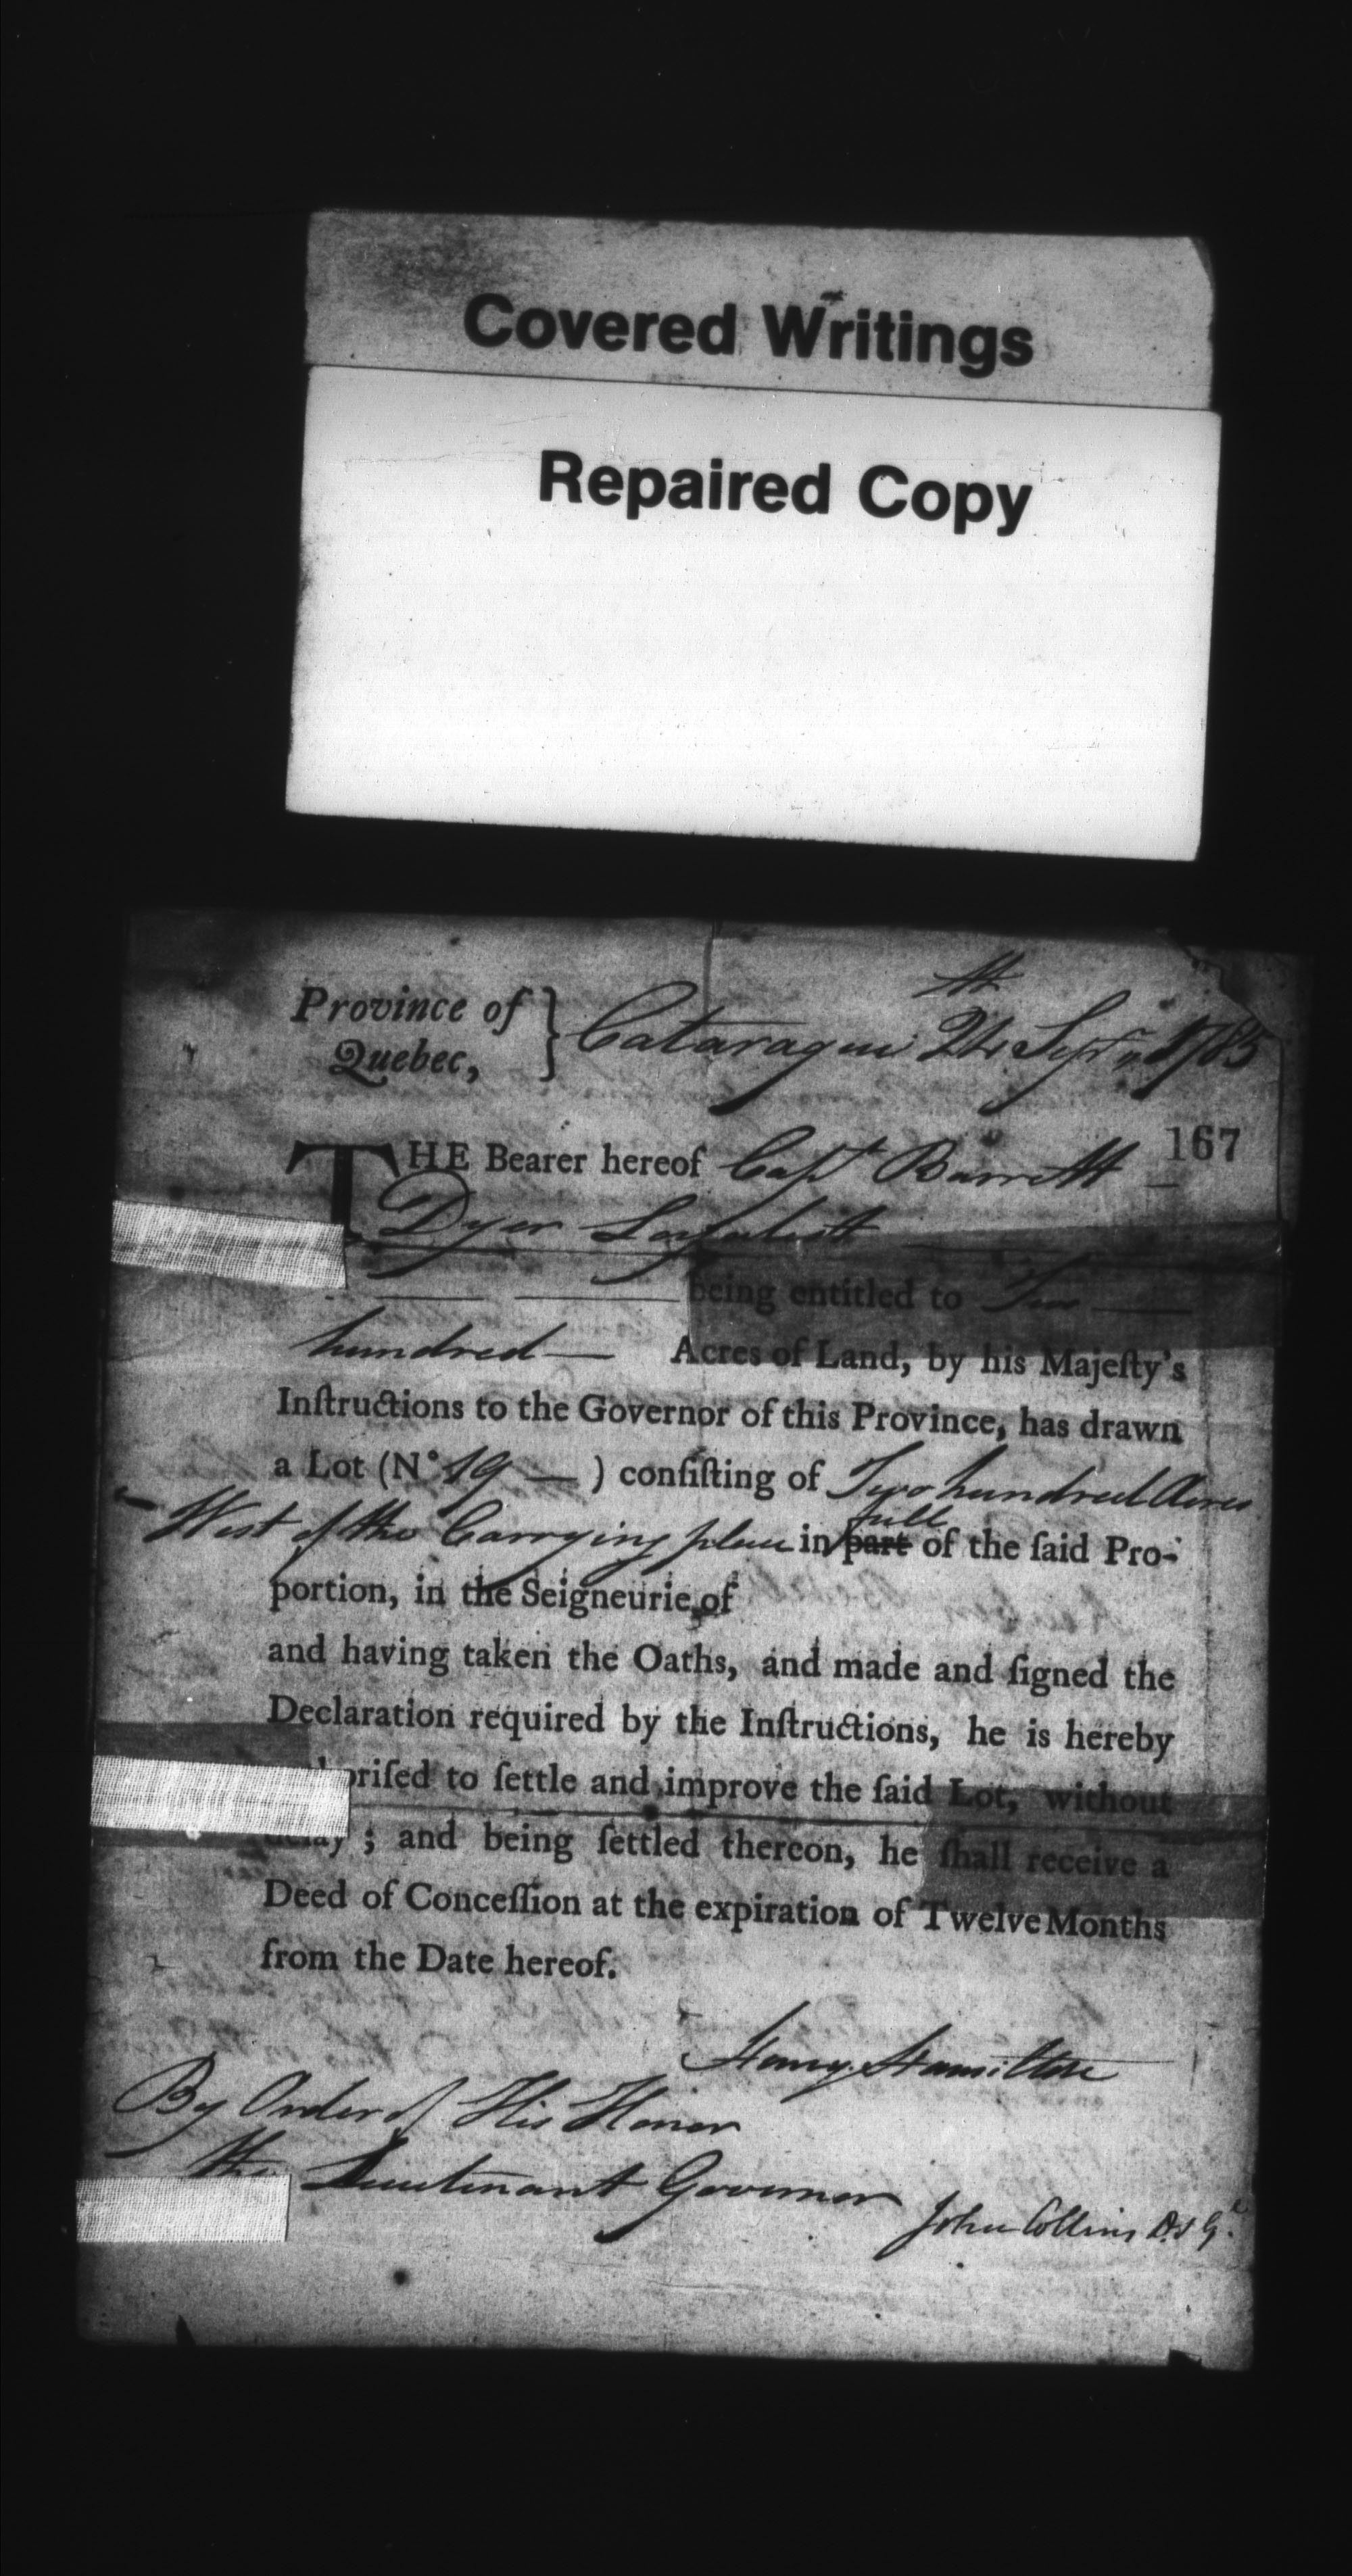 Covered Writings
Repaired Copy
Province of } Cataraqui 24th Sepr. 1785
Quebec,
167
THE Bearer hereof Capt Barrett
Dyer Loyalist
being entitled to Two
hundred — Acres of Land, by his Majeſty's
Inſtructions to the Governor of this Province, has drawn
a Lot (N° 19 — ) conſiſting of Two hundred Acres
West of the Carrying place in part full of the ſaid Pro-
portion, in the Seigneurie of
and having taken the Oaths, and made and ſigned the
Declaration required by the Inſtructions, he is hereby
oriſed to ſettle and improve the ſaid Lot, without
delay ; and being ſettled thereon, he ſhall receive a
Deed of Conceſſion at the expiration of Twelve Months
from the Date hereof.
Henry Hamilton
By Order of His Honor
the Lieutenant Governor
John Collins D.S.Gl.